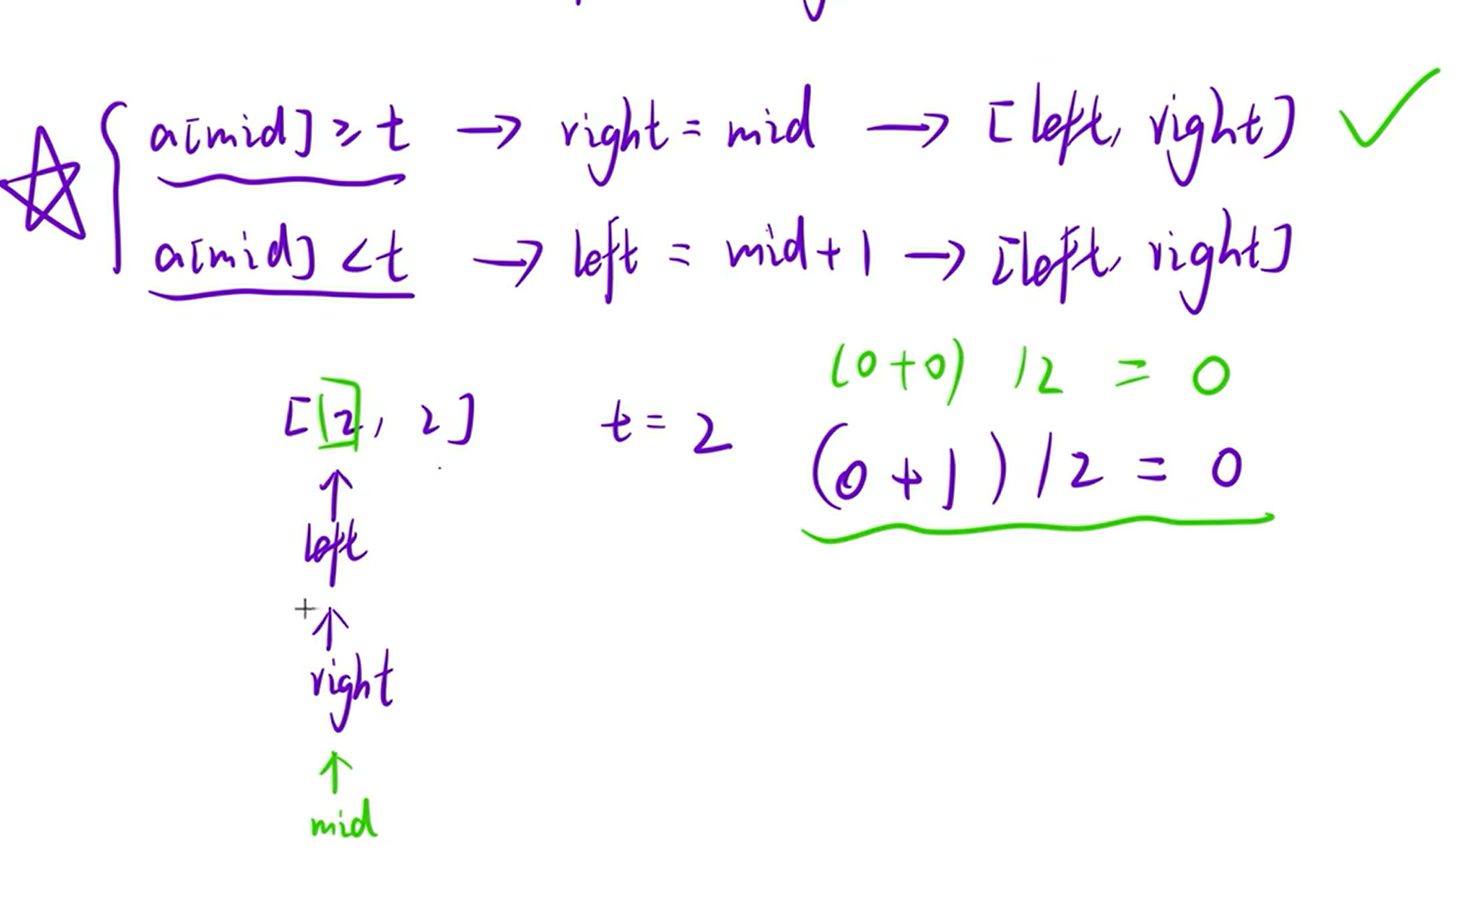 a[mid] ≥ t → right = mid → [left, right]
a[mid] < t → left = mid+1 → [left, right]
(0+0) /2 = 0
[2, 2] t = 2 (0+1) /2 = 0
left
right
mid